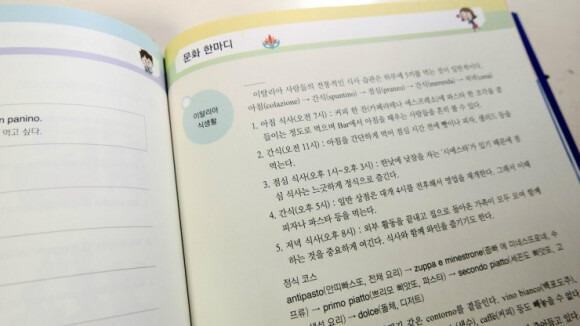 n panino.
먹고 싶다.
문화 한마디
이탈리아
식생활
이탈리아 사람들의 전통적인 식사 습관은 하루에 5끼를 먹는 것이 일반적이다.
아침(colazione) → 간식(spuntino) → 점심(pranzo) → 간식(merenda) → 저녁(cena)
1. 아침 식사(오전 7시) : 커피 한 잔(카페라테나 에스프레소)에 파스타 한 조각을 곁
들이는 정도로 먹으며 Bar에서 아침을 때우는 사람들을 흔히 볼 수 있다.
2. 간식(오전 11시) : 아침을 간단하게 먹어 점심 시간 전에 빵이나 피자, 샐러드 등을
먹는다.
3. 점심 식사(오후 1시~오후 3시) : 한낮에 낮잠을 자는 '시에스타'가 있기 때문에 점
심 식사는 느긋하게 정식으로 즐긴다.
4. 간식(오후 5시) : 일반 상점은 대개 4시를 전후해서 영업을 재개한다. 그래서 이때
피자나 파스타 등을 먹는다.
5. 저녁 식사(오후 8시) : 외부 활동을 끝내고 집으로 돌아온 가족이 모두 모여 함께
하는 것을 중요하게 여긴다. 식사와 함께 와인을 즐기기도 한다.
정식 코스
antipasto(안띠빠스또, 전채 요리) → zuppa e minestrone(쭙빠 에 미네스뜨로네, 수
프류) → primo piatto(쁘리모 삐앗또, 파스타) → secondo piatto(세꼰도 삐앗또, 고
생선 요리) → dolce(돌체, 디저트)
같은 contorno를 곁들인다. vino bianco(백포도주),
caffè(커피) 등도 빼놓을 수 없다.